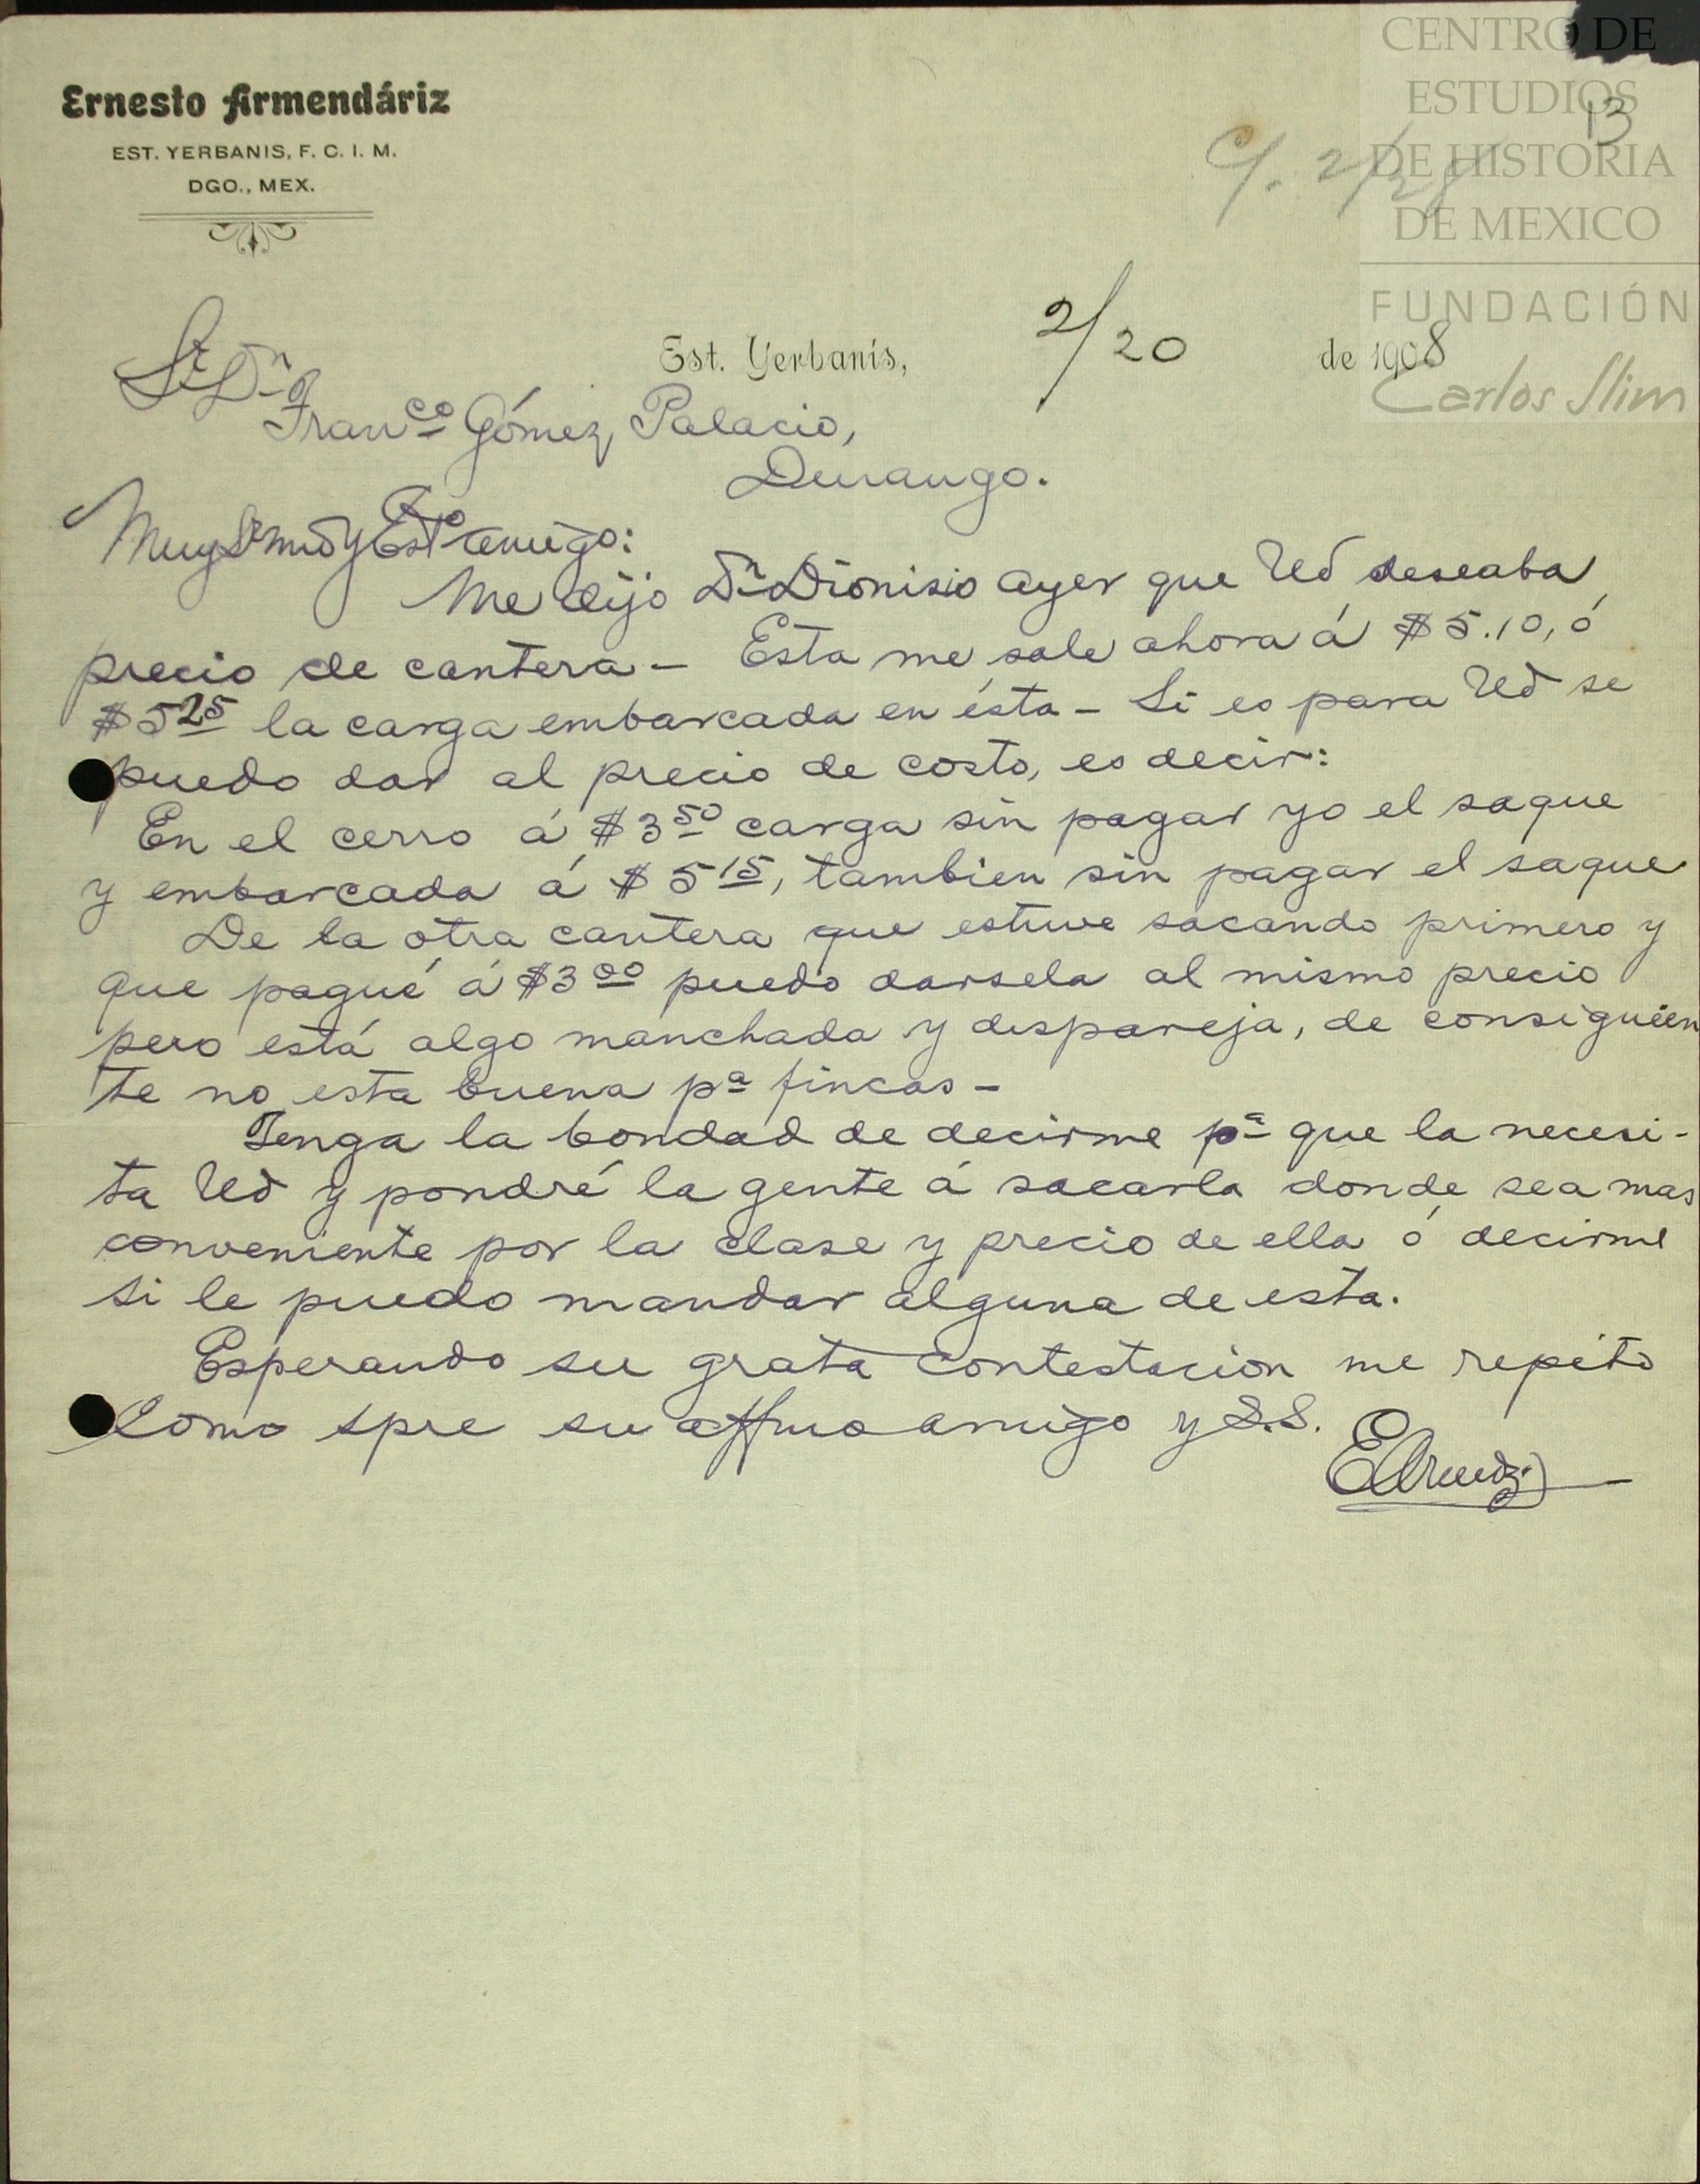 CENTRO DE
ESTUDIOS
DE HISTORIA
DE MEXICO
FUNDACIÓN
Carlos Slim
13
Ernesto Armendáriz
EST. YERBANIS, F. C. I. M.
DGO., MEX.
Est. Yerbanís, 2/20 de 1908
Sr Dn
Franco Gómez Palacio,
Durango.
Muy Sr mio y amigo:
Me dijo Dn Dionisio ayer que Ud deseaba
precio de cantera - Esta me sale ahora á $5.10, ó
$5 25 la carga embarcada en ésta - Si es para Ud se
puedo dar al precio de costo, es decir:
En el cerro á $3 50 carga sin pagar yo el saque
y embarcada á $5 15, tambien sin pagar el saque
De la otra cantera que estuve sacando primero y
que pagué á $3 00 puedo darsela al mismo precio
pero está algo manchada y dispareja, de consiguien
te no esta buena pa fincas -
Tenga la bondad de decirme pa que la necesi-
ta Ud y pondré la gente á sacarla donde sea mas
conveniente por la clase y precio de ella ó decirme
si le puedo mandar alguna de esta.
Esperando su grata contestacion me repito
como spre su affmo amigo y S.S.